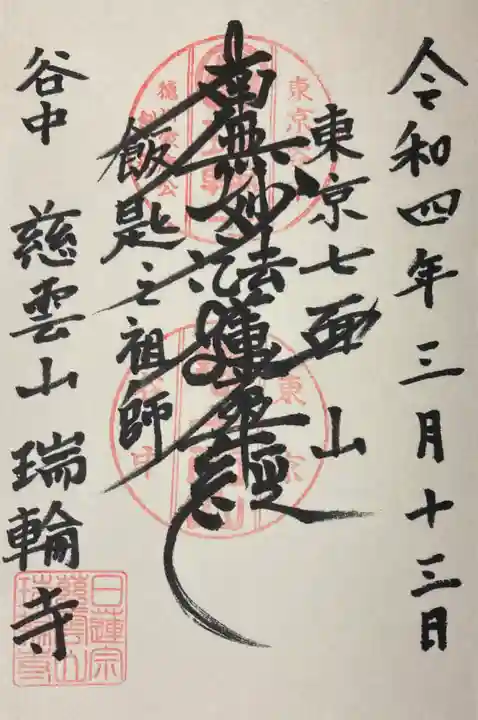 令和四年三月十三日
東京七面山
南無妙法蓮華経
飯匙之祖師
谷中 慈雲山 瑞輪寺
日蓮宗
慈雲山
瑞輪寺